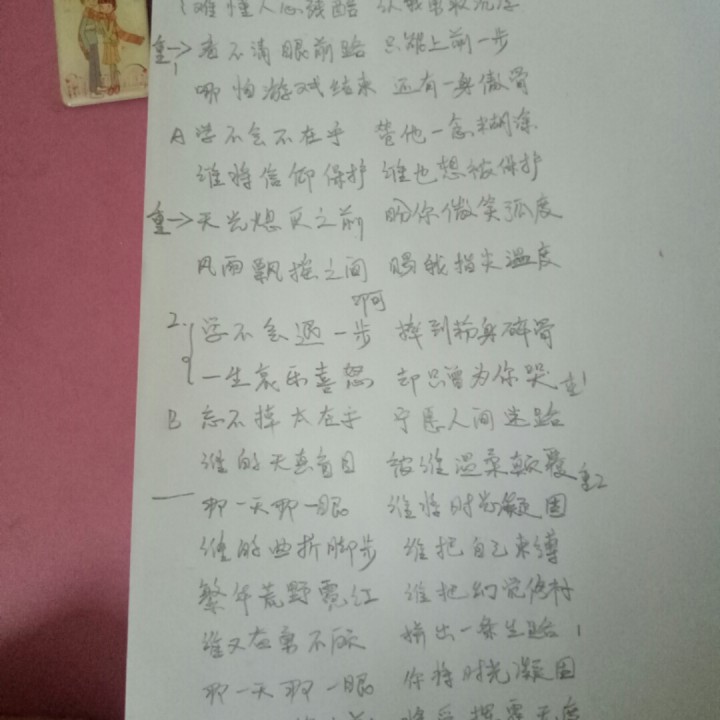 难懂人心残酷 从我勇敢沉浮
重1→看不清眼前路 只能上前一步
哪怕游戏结束 还有一身傲骨
A 学不会不在乎 管他一念糊涂
谁将信仰保护 谁也想被保护
重→天光熄灭之前 盼你微笑弧度
风雨飘摇之间 赐我指尖温度
啊
2. 学不会退一步 摔到粉身碎骨
一生哀乐喜怒 却只曾为你哭 重1
B 忘不掉太在乎 宁愿人间迷路
谁的天真盲目 被谁温柔颠覆 重2
那一天那一眼 谁将时光凝固
谁的曲折脚步 谁把自己束缚
繁华荒野霓红 谁把幻觉修
谁又在奋不 拼出一条生路
那一天那一眼 你将时光凝固